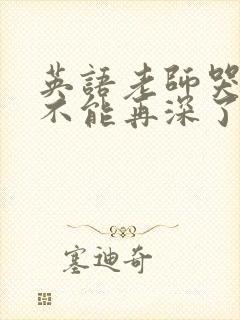 英語老師哭
不能再深了
塞迪奇